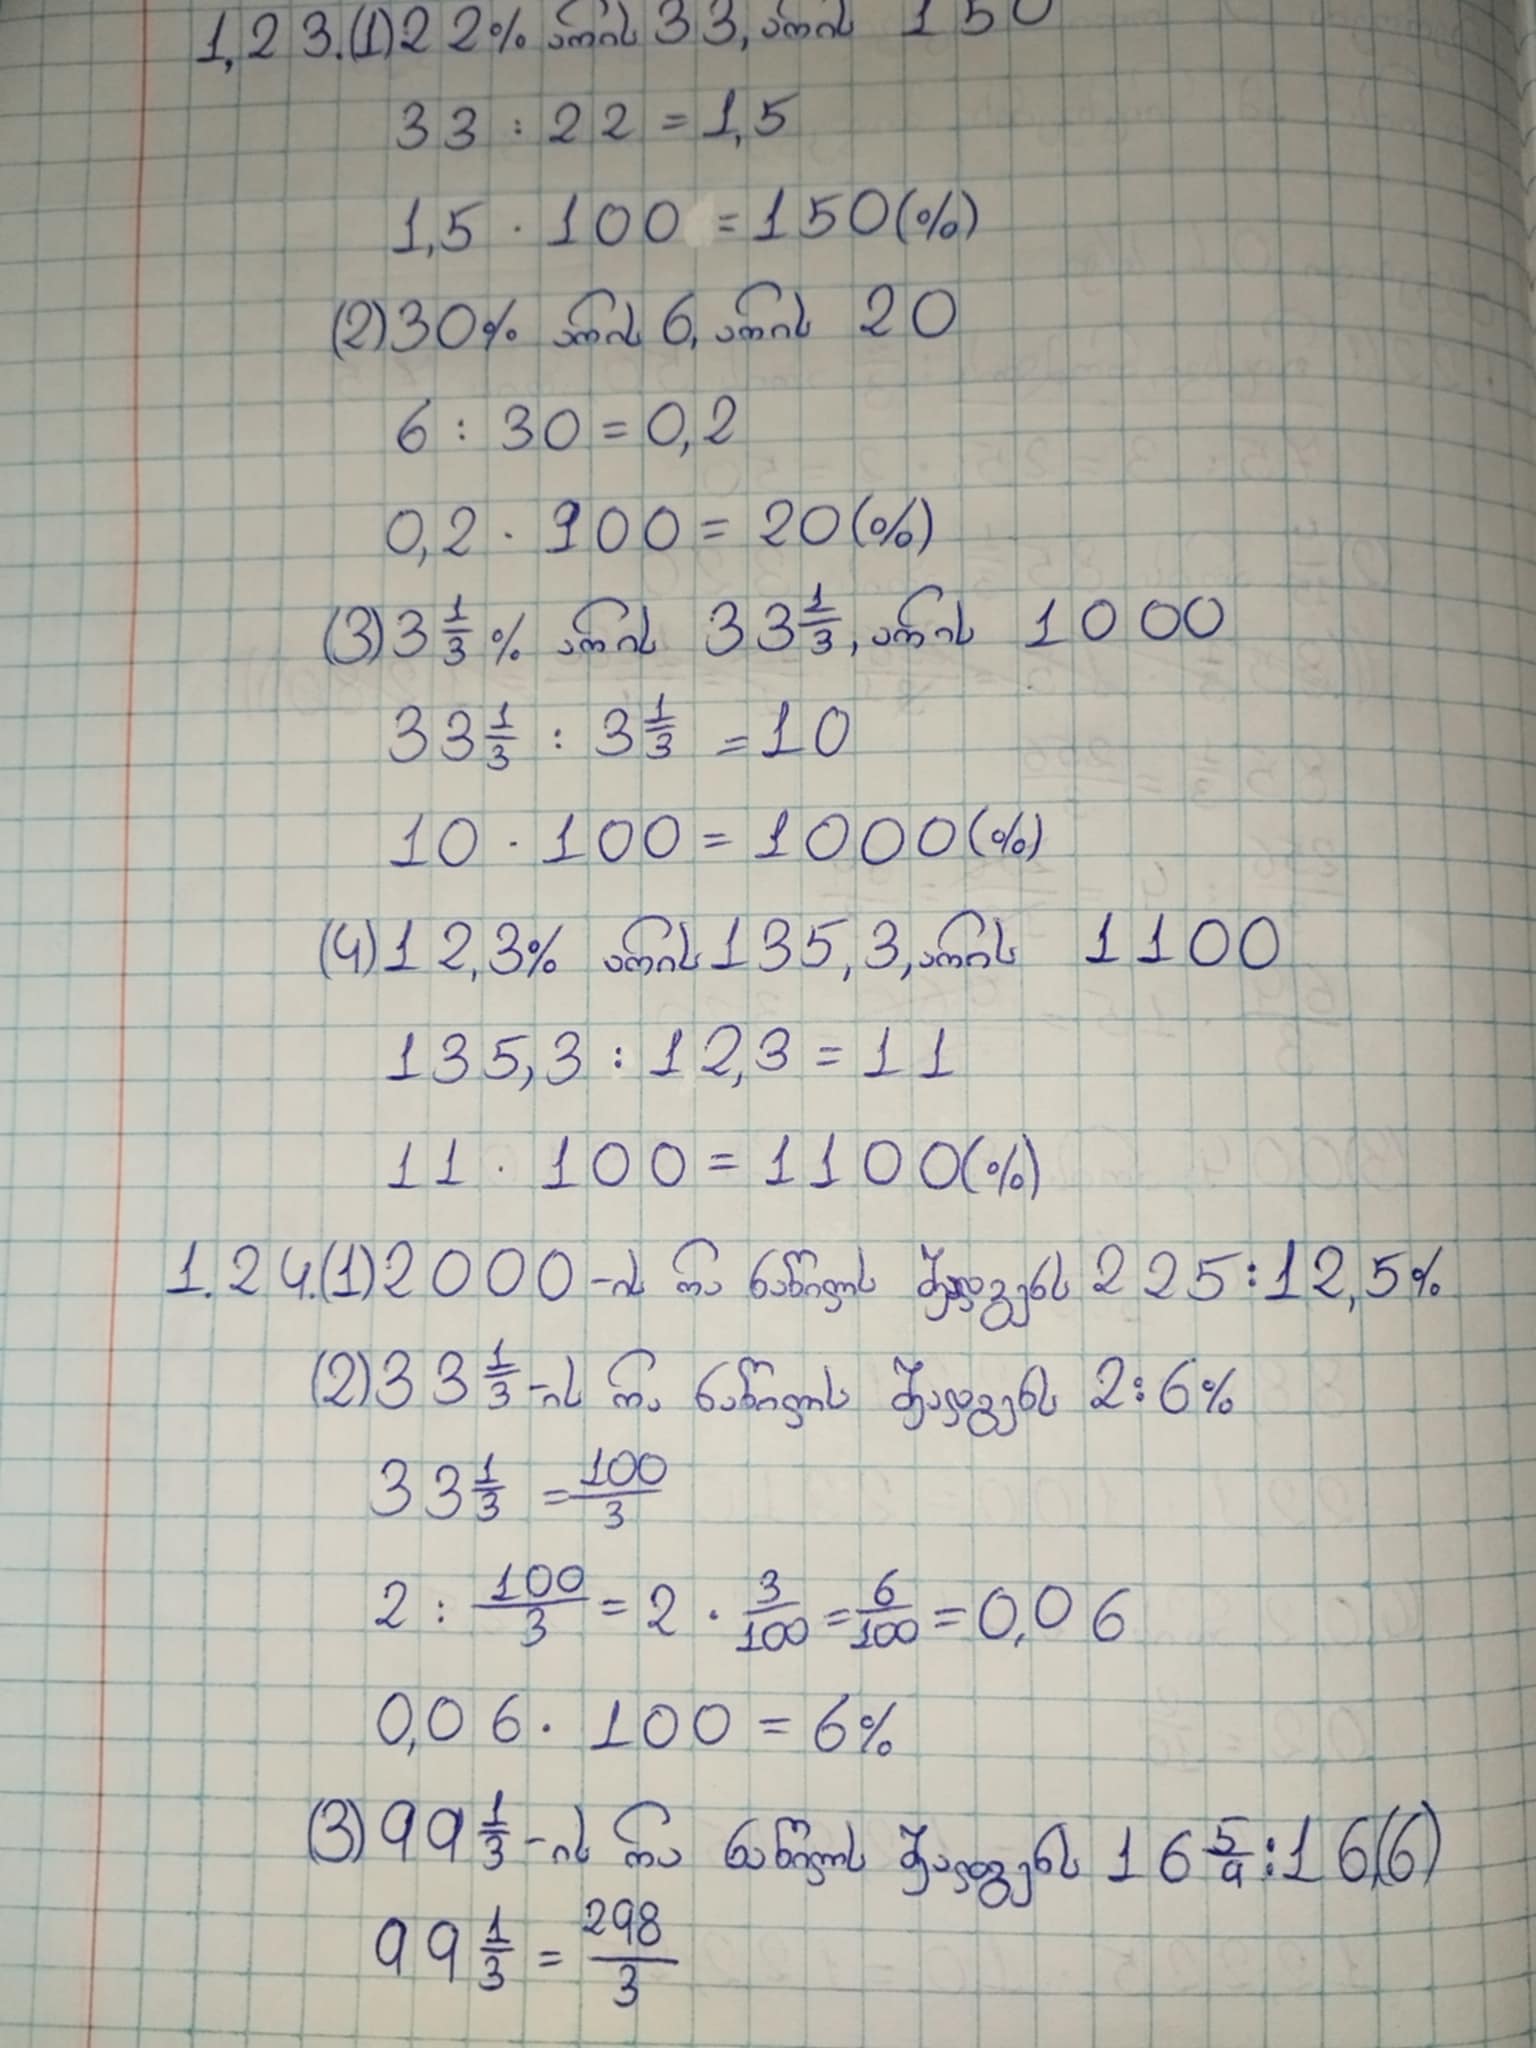 1,23.(1)22% არის 33, არის 150
33 : 22 = 1,5
1,5 · 100 = 150(%)
(2)30% არის 6, არის 20
6 : 30 = 0,2
0,2 · 100 = 20(%)
(3)3 1/3 % არის 33 1/3, არის 1000
33 1/3 : 3 1/3 = 10
10 · 100 = 1000(%)
(4)12,3% არის 135,3, არის 1100
135,3 : 12,3 = 11
11 · 100 = 1100(%)
1.24.(1)2000-ის რა ნაწილს შეადგენს 225:12,5%
(2)33 1/3-ის რა ნაწილს შეადგენს 2:6%
33 1/3 = 100/3
2 : 100/3 = 2 · 3/100 = 6/100 = 0,06
0,06 · 100 = 6%
(3)99 1/3-ის რა ნაწილს შეადგენს 16 5/9:16,(6)
99 1/3 = 298/3